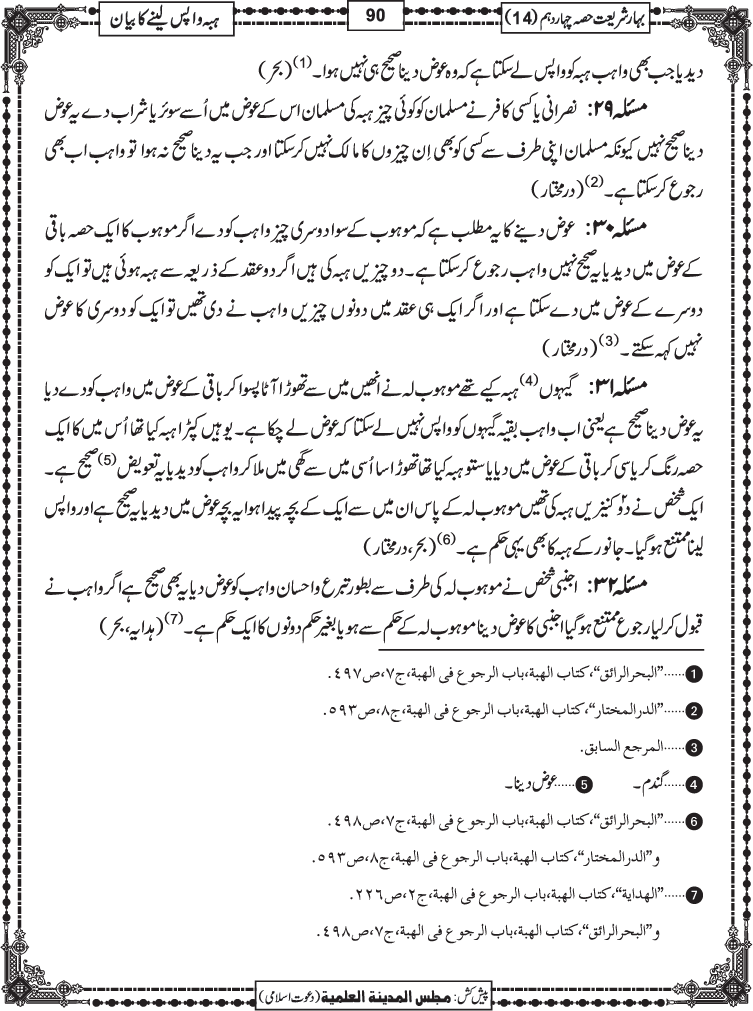 بہار شریعت حصہ چہاردہم (14)
90
ہبہ واپس لینے کا بیان
دیدیا جب بھی واہب ہبہ کو واپس لے سکتا ہے کہ وہ عوض دینا صحیح ہی نہیں ہوا۔(1) (بحر)
مسئلہ ۲۹: نصرانی یا کسی کافر نے مسلمان کو کوئی چیز ہبہ کی مسلمان اس کے عوض میں اُسے سوئر یا شراب دے یہ عوض
دینا صحیح نہیں کیونکہ مسلمان اپنی طرف سے کسی کو بھی اِن چیزوں کا مالک نہیں کرسکتا اور جب یہ دینا صحیح نہ ہوا تو واہب اب بھی
رجوع کرسکتا ہے۔(2) (درمختار)
مسئلہ ۳۰: عوض دینے کا یہ مطلب ہے کہ موہوب کے سوا دوسری چیز واہب کو دے اگر موہوب کا ایک حصہ باقی
کے عوض میں دیدیا یہ صحیح نہیں واہب رجوع کرسکتا ہے۔ دو چیزیں ہبہ کی ہیں اگر دو عقد کے ذریعہ سے ہبہ ہوئی ہیں تو ایک کو
دوسرے کے عوض میں دے سکتا ہے اور اگر ایک ہی عقد میں دونوں چیزیں واہب نے دی تھیں تو ایک کو دوسری کا عوض
نہیں کہہ سکتے۔(3) (درمختار)
مسئلہ ۳۱: گیہوں(4) ہبہ کیے تھے موہوب لہ نے انھیں میں سے تھوڑا آٹا پسوا کر باقی کے عوض میں واہب کو دے دیا
یہ عوض دینا صحیح ہے یعنی اب واہب بقیہ گیہوں کو واپس نہیں لے سکتا کہ عوض لے چکا ہے۔ یوہیں کپڑا ہبہ کیا تھا اُس میں کا ایک
حصہ رنگ کر یا سی کر باقی کے عوض میں دیا یا ستو ہبہ کیا تھا تھوڑا سا اُسی میں سے گھی میں ملا کر واہب کو دیدیا یہ تعویض(5) صحیح ہے۔
ایک شخص نے دو۲ کنیزیں ہبہ کی تھیں موہوب لہ کے پاس ان میں سے ایک کے بچہ پیدا ہوا یہ بچہ عوض میں دیدیا یہ صحیح ہے اور واپس
لینا ممتنع ہوگیا۔ جانور کے ہبہ کا بھی یہی حکم ہے۔(6) (بحر، درمختار)
مسئلہ ۳۲: اجنبی شخص نے موہوب لہ کی طرف سے بطور تبرع و احسان واہب کو عوض دیا یہ بھی صحیح ہے اگر واہب نے
قبول کرلیا رجوع ممتنع ہوگیا اجنبی کا عوض دینا موہوب لہ کے حکم سے ہو یا بغیر حکم دونوں کا ایک حکم ہے۔(7) (ہدایہ، بحر)
1 ......”البحرالرائق“،کتاب الهبة،باب الرجوع فی الهبة،ج٧،ص٤٩٧.
2 ......”الدرالمختار“،کتاب الهبة،باب الرجوع فی الهبة،ج٨،ص٥٩٣.
3 ......المرجع السابق.
4 ......گندم۔ 5 ......عوض دینا۔
6 ......”البحرالرائق“،کتاب الهبة،باب الرجوع فی الهبة،ج٧،ص٤٩٨.
و”الدرالمختار“،کتاب الهبة،باب الرجوع فی الهبة،ج٨،ص٥٩٣.
7 ......”الهداية“،کتاب الهبة،باب الرجوع فی الهبة،ج٢،ص٢٢٦.
و”البحرالرائق“،کتاب الهبة،باب الرجوع فی الهبة،ج٧،ص٤٩٨.
پیش کش: مجلس المدينة العلمية (دعوت اسلامی)